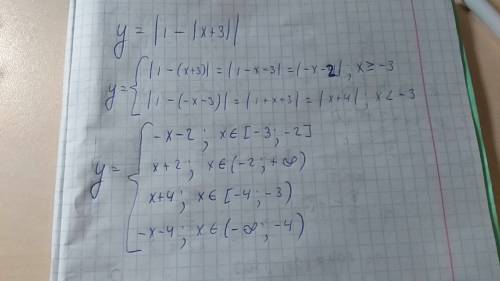 y = |1 - |x+3||
y = { |1-(x+3)| = |1-x-3| = |-x-2|, x ≥ -3
|1-(-x-3)| = |1+x+3| = |x+4|, x < -3
y = { -x-2; x∈[-3; -2]
x+2; x∈(-2; +∞)
x+4; x∈[-4; -3)
-x-4; x∈(-∞; -4)